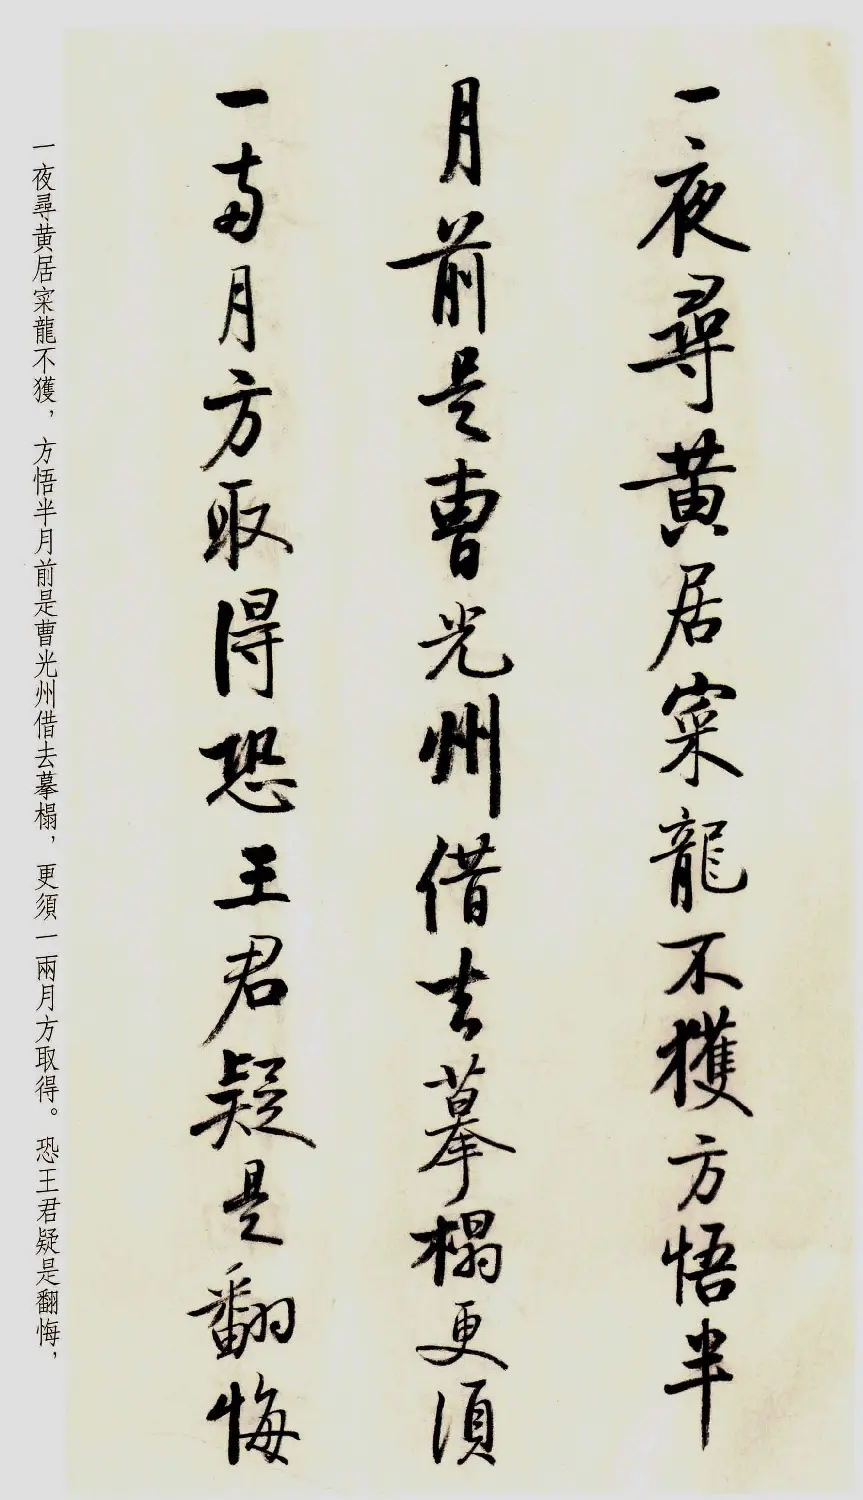 一夜尋黄居寀龍不獲方悟半
月前是曹光州借去摹榻更須
一兩月方取得恐王君疑是翻悔
一夜尋黄居寀龍不獲，方悟半月前是曹光州借去摹榻，更須一兩月方取得。恐王君疑是翻悔，